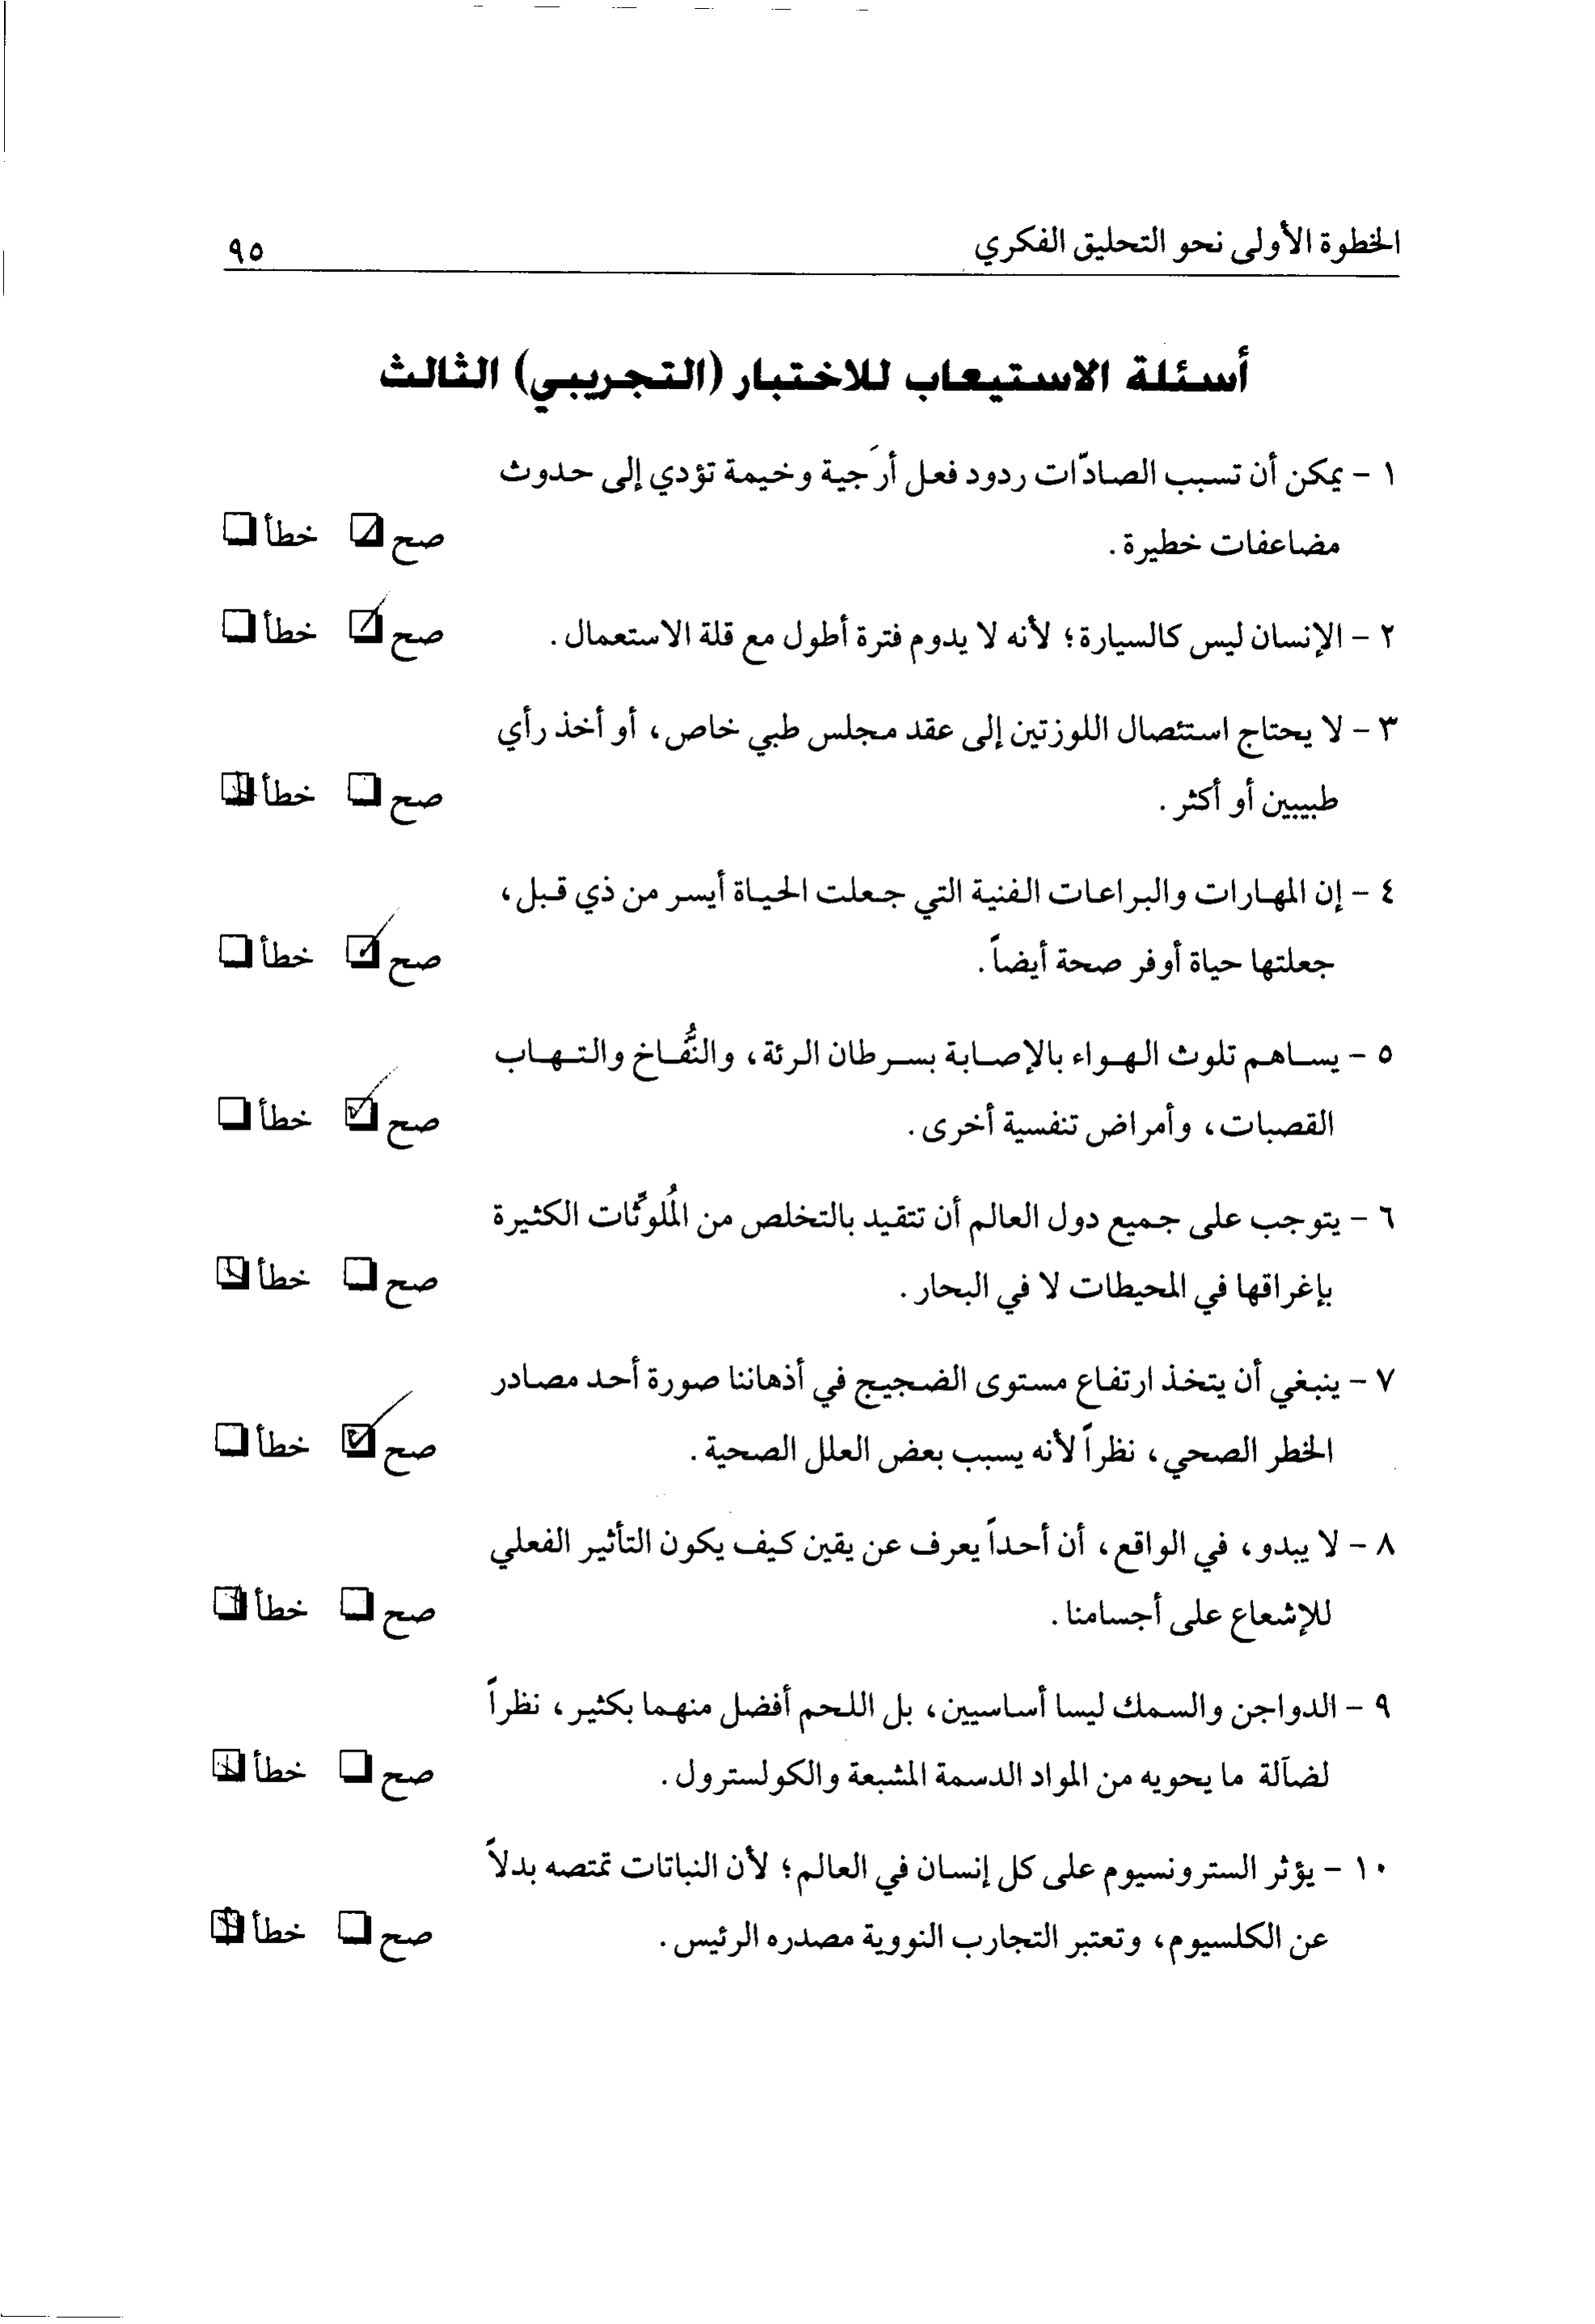 الخطوة الأولى نحو التحليق الفكري ٩٥
أسئلة الاستيعاب للاختبار (التجريبي) الثالث
١ - يمكن أن تسبب الصادّات ردود فعل أرَجية وخيمة تؤدي إلى حدوث
مضاعفات خطيرة. صح خطأ
٢ - الإنسان ليس كالسيارة؛ لأنه لا يدوم فترة أطول مع قلة الاستعمال. صح خطأ
٣ - لا يحتاج استئصال اللوزتين إلى عقد مجلس طبي خاص، أو أخذ رأي
طبيبين أو أكثر. صح خطأ
٤ - إن المهارات والبراعات الفنية التي جعلت الحياة أيسر من ذي قبل،
جعلتها حياة أوفر صحة أيضاً. صح خطأ
٥ - يساهم تلوث الهواء بالإصابة بسرطان الرئة، والنُّفاخ والتهاب
القصبات، وأمراض تنفسية أخرى. صح خطأ
٦ - يتوجب على جميع دول العالم أن تتقيد بالتخلص من المُلوِّثات الكثيرة
بإغراقها في المحيطات لا في البحار. صح خطأ
٧ - ينبغي أن يتخذ ارتفاع مستوى الضجيج في أذهاننا صورة أحد مصادر
الخطر الصحي، نظراً لأنه يسبب بعض العلل الصحية. صح خطأ
٨ - لا يبدو، في الواقع، أن أحداً يعرف عن يقين كيف يكون التأثير الفعلي
للإشعاع على أجسامنا. صح خطأ
٩ - الدواجن والسمك ليسا أساسيين، بل اللحم أفضل منهما بكثير، نظراً
لضآلة ما يحويه من المواد الدسمة المشبعة والكولسترول. صح خطأ
١٠ - يؤثر السترونسيوم على كل إنسان في العالم؛ لأن النباتات تمتصه بدلاً
عن الكلسيوم، وتعتبر التجارب النووية مصدره الرئيس. صح خطأ